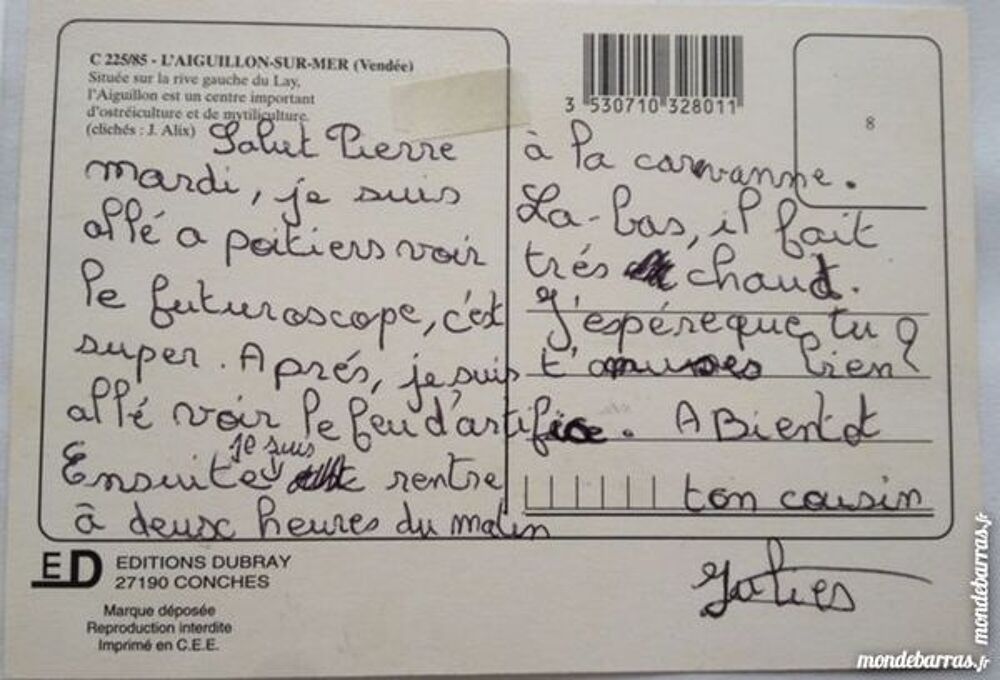 C 225/85 - L'AIGUILLON-SUR-MER (Vendée)
Située sur la rive gauche du Lay,
l'Aiguillon est un centre important
d'ostréiculture et de mytiliculture.
(clichés : J. Alix)
Salut Pierre
mardi, je suis
allé a poitiers voir
le futuroscope, c'est
super. Aprés, je suis
allé voir le feu d'artifice.
Ensuite je suis rentre
à deux heures du matin
à la caravanne.
La-bas, il fait
trés chaud.
J'espére que tu
t'amuses bien ?
A Bientôt
ton cousin
Julies
3 530710 328011
8
ED
EDITIONS DUBRAY
27190 CONCHES
Marque déposée
Reproduction interdite
Imprimé en C.E.E.
mondebarras.fr
mondebarras.fr